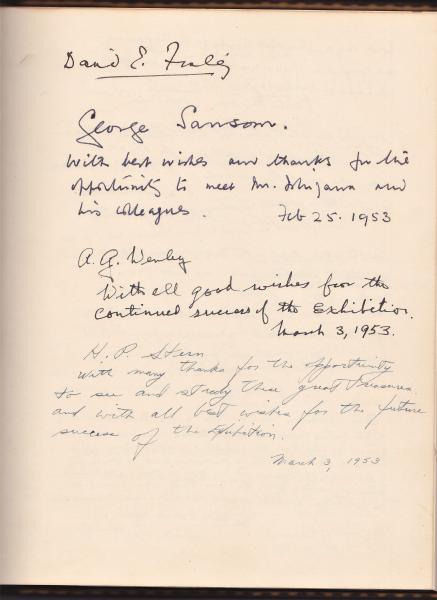 David E. Finley
George Sansom.
With best wishes and thanks for the
opportunity to meet Mr. Ishizawa and
his colleagues. Feb 25. 1953
A. G. Wenley
With all good wishes for the
continued success of the Exhibition.
March 3, 1953.
H. P. Stern
With many thanks for the opportunity
to see and study these great treasures
and with all best wishes for the future
success of the Exhibition.
March 3, 1953